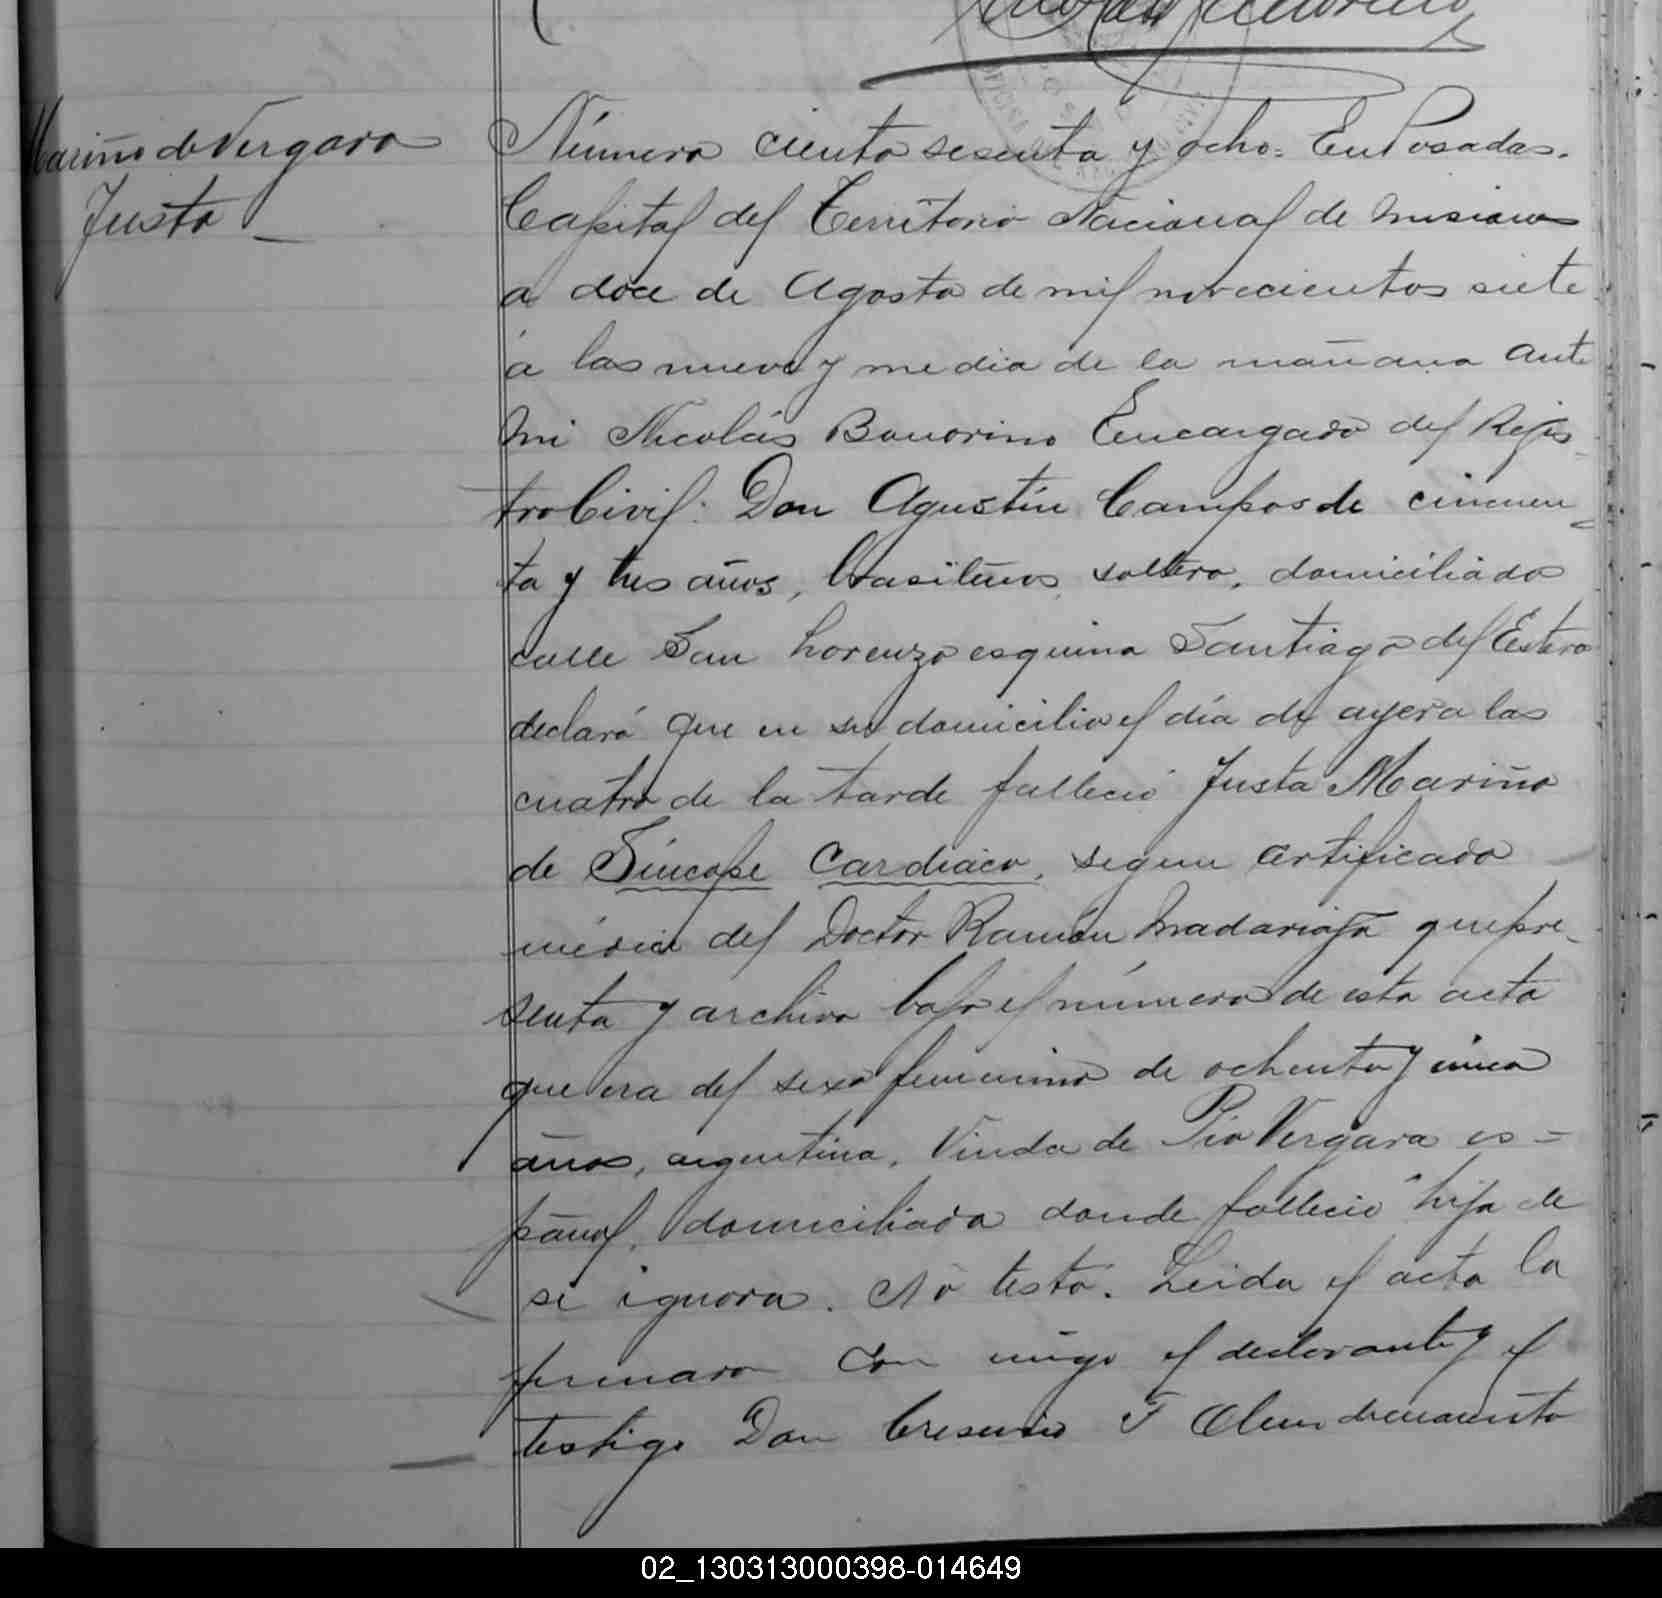 Mariño de Vergara
Justa
Número ciento sesenta y ocho= En Posadas.
Capital del Territorio Nacional de Misiones
a doce de Agosto de mil novecientos siete
á las nueve y media de la mañana ante
mi Nicolás Bonorino Encargado del Rejis-
tro Civil: Don Agustín Campos de cincuen-
ta y tres años, brasilero, soltero, domiciliado
calle San Lorenzo esquina Santiago del Estero
declaró que en su domicilio el día de ayer a las
cuatro de la tarde falleció Justa Mariño
de Síncope Cardiaco, segun certificado
médico del Doctor Ramón Madariaga que pre-
senta y archivo bajo el número de esta acta
que era del sexo femenino de ochenta y cinco
años, argentina, Viuda de Pio Vergara es=
pañol, domiciliada donde falleció hija de
se ignora. No testó. Leida el acta la
firmaron conmigo el declarante y el
testigo Don
02_130313000398-014649